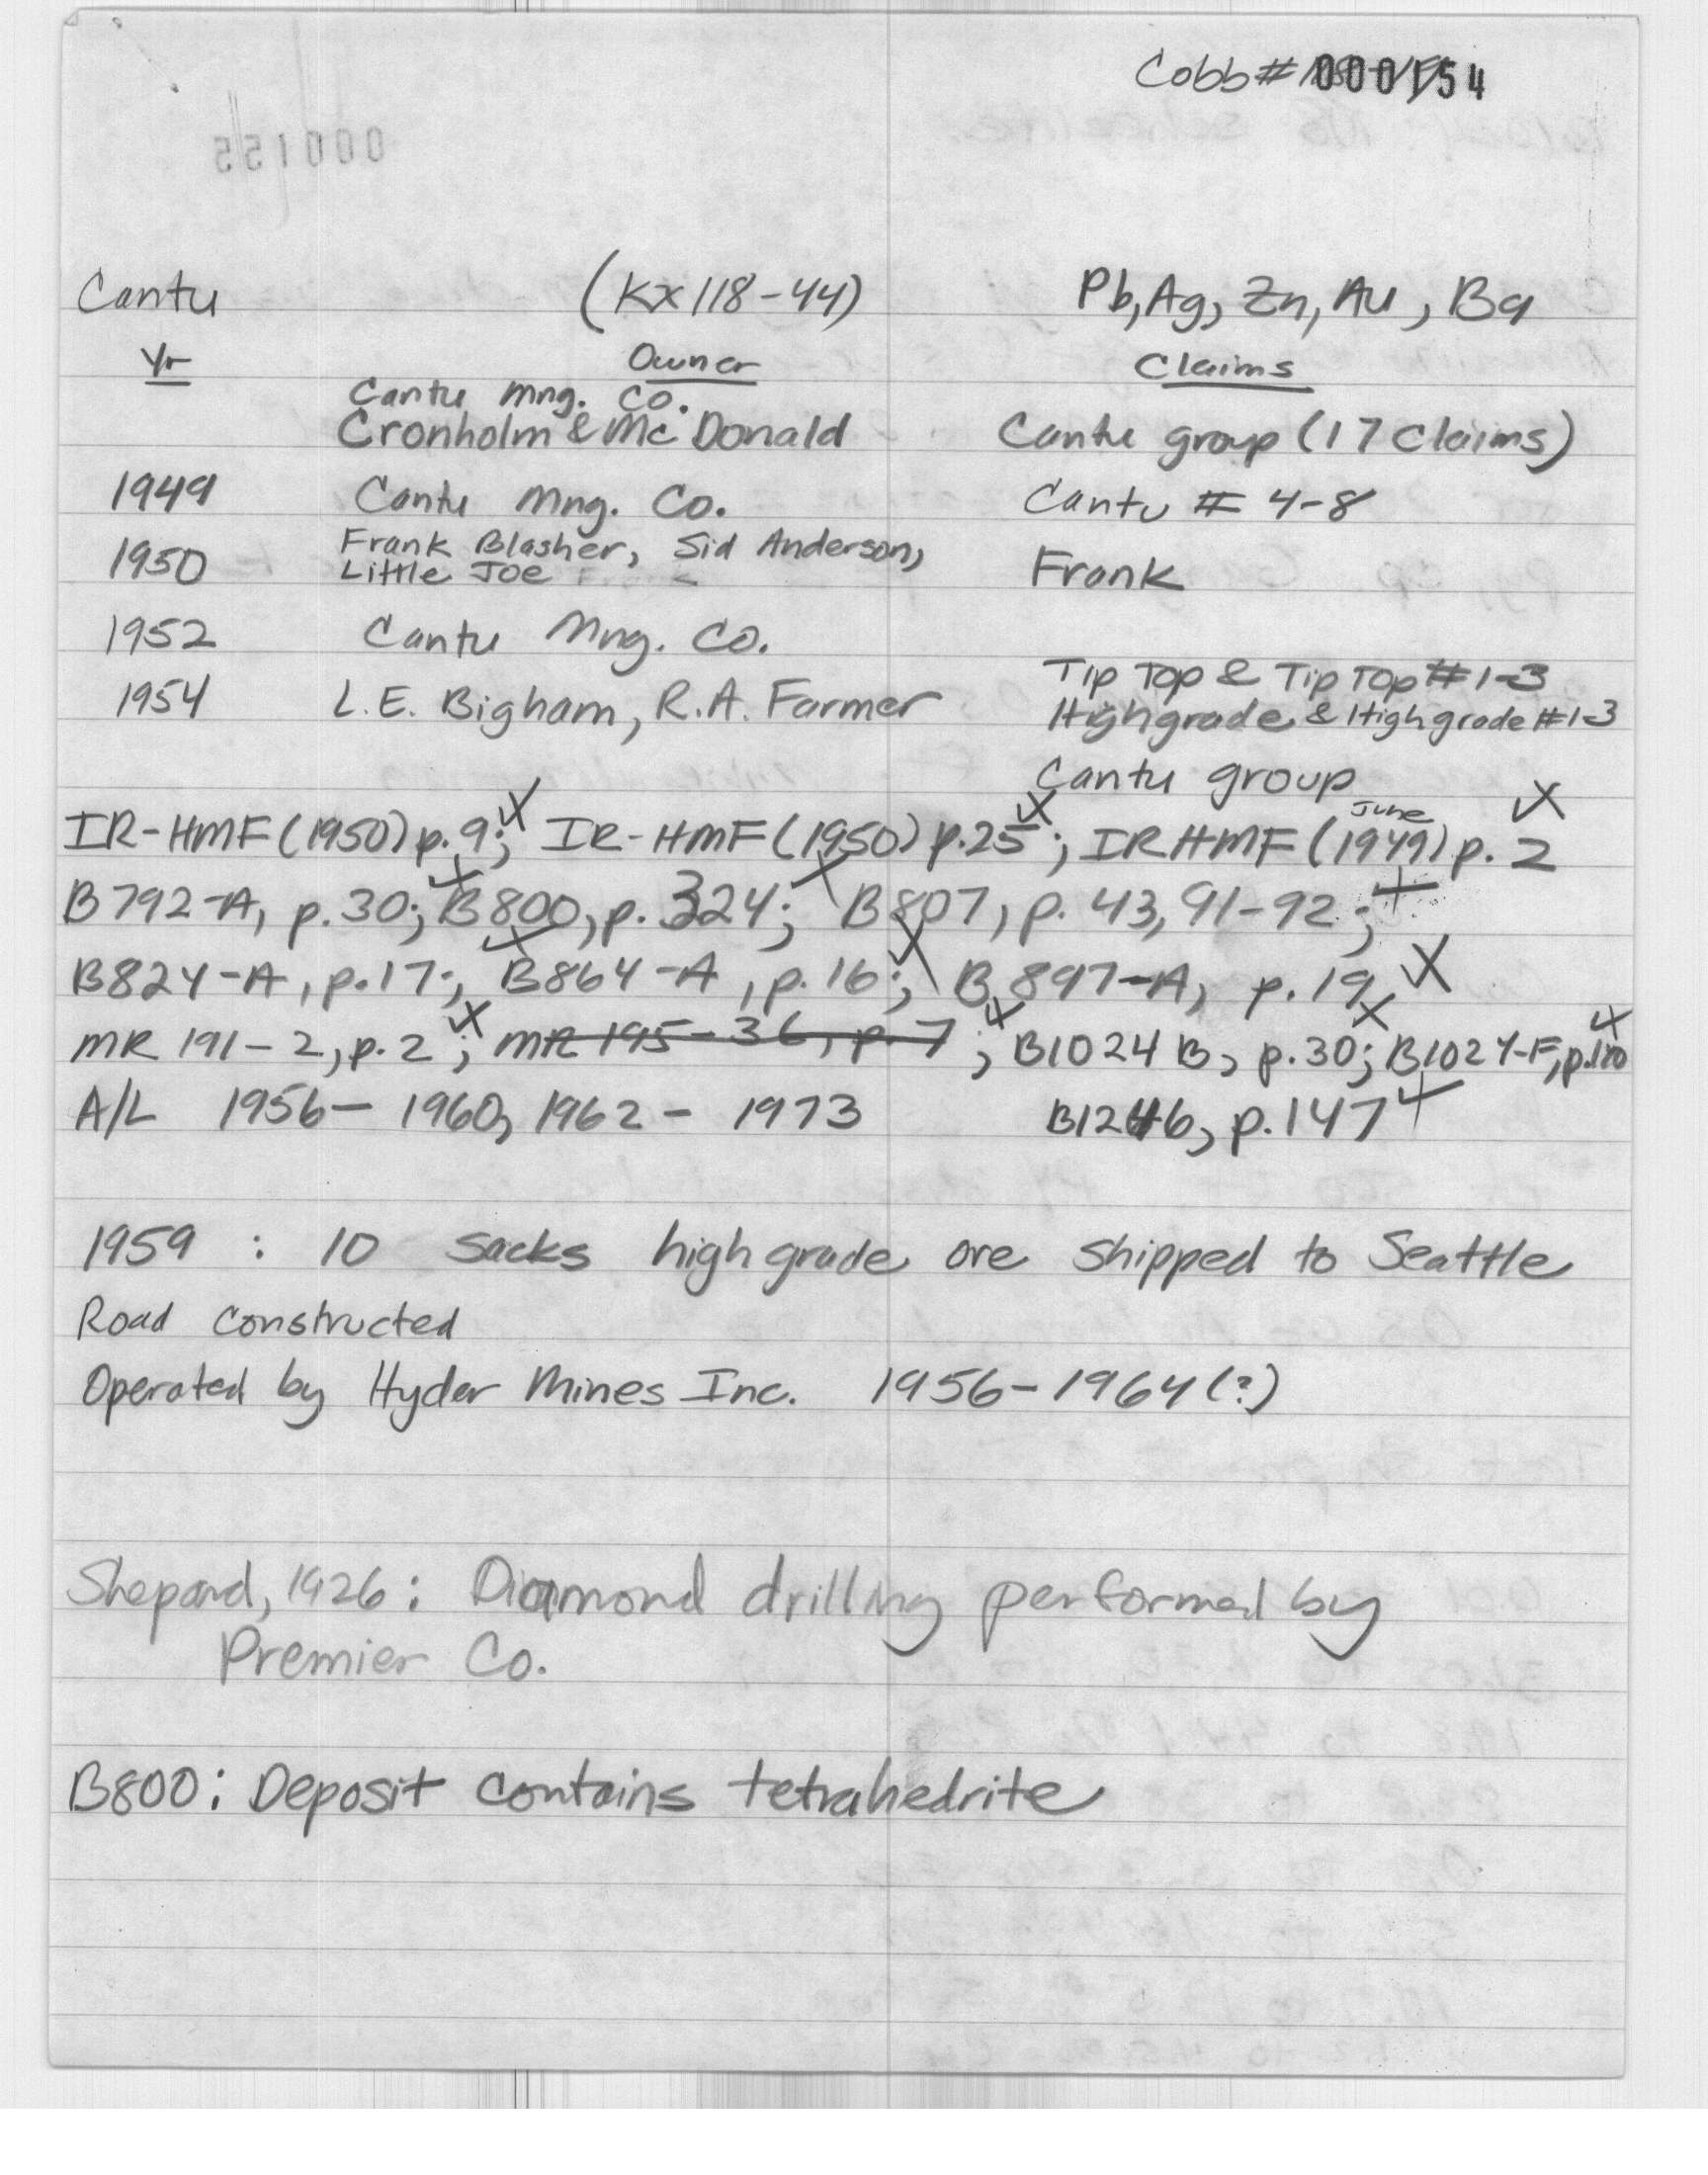 Cobb# 000154
000155
Cantu (KX118-44) Pb, Ag, Zn, Au, Ba
Yr Owner Claims
Cantu Mng. Co.
Cronholm & McDonald Cantu group (17 Claims)
1949 Cantu Mng. Co. Cantu # 4-8
1950 Frank Blasher, Sid Anderson, Frank
Little Joe
1952 Cantu Mng. Co.
1954 L.E. Bigham, R.A. Farmer Tip Top & Tip Top #1-3
Highgrade & Highgrade #1-3
Cantu group
IR-HMF (1950) p. 9; IR-HMF (1950) p.25; IRHMF (June 1949) p. 2
B792-A, p. 30; B800, p. 324; B807, p. 43, 91-92;
B824-A, p. 17; B864-A, p. 16; B897-A, p. 19
MR 191-2, p. 2; MR 195-36, p. 7; B1024B, p. 30; B1024-F, p.
A/L 1956-1960, 1962-1973 B1246, p. 147
1959 : 10 sacks high grade ore shipped to Seattle
Road constructed
Operated by Hyder Mines Inc. 1956-1964(?)
Shepard, 1926: Diamond drilling performed by
Premier Co.
B800: Deposit contains tetrahedrite